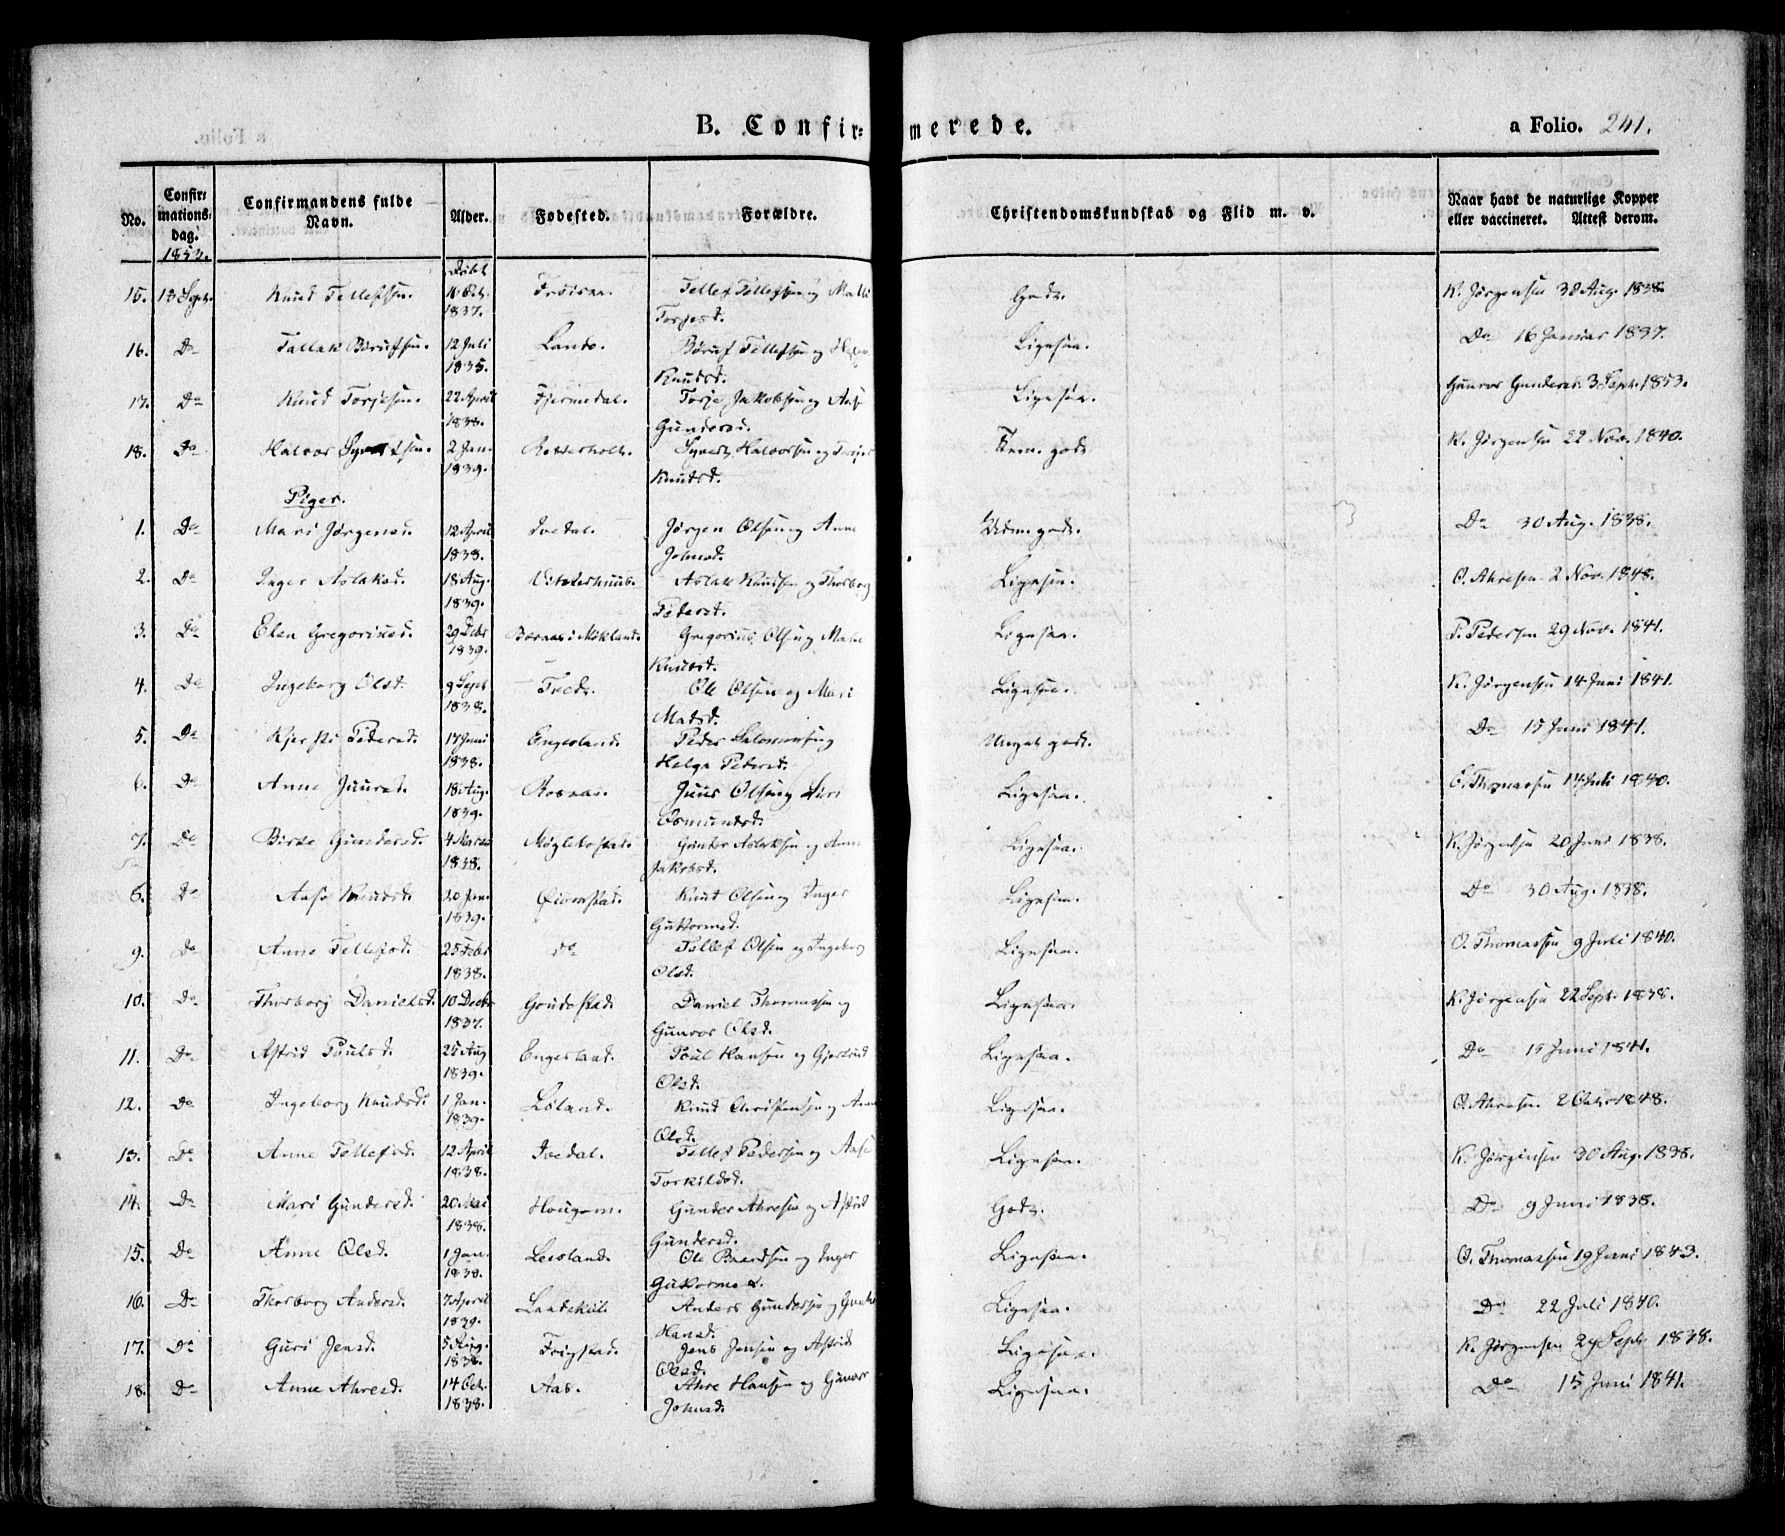 B. Confir=merede.
a Folio. 241.
No. Confirmationsdag. Confirmandens fulde Navn. Alder. Fødested. Forældre. Christendomskundskab og Flid m. v. Naar havt de naturlige Kopper eller vaccineret. Attest derom.
15. 13 Sept. Knud Tellefsen. 1837. Tellef Tellefsen og Torjesd. Godt. K. Jørgensen 30 Aug. 1838.
16. Do 12 Juli 1835. Tellefsen og Knudsd. Ligesaa. Do 16 Januar 1837.
17. Do Knud Torjesen. 22 April 1838. Fjermedal. Torje Jakobsen og Aase Gundersd. Ligesaa. Gunvor Gundersd. 3 Sept. 1853.
18. Do Halvor 2 Jan. 1839. Halvorsen og Knutsd. godt. K. Jørgensen 22 Nov. 1840.
Piger.
1. Do Mari Jørgensd. 12 April 1838. Ivedal. Jørgen Olsen og Anne Johnsd. godt. Do 30 Aug. 1838.
2. Do Inger Aslaksd. 18 Aug. 1839. Aslak Knudsen og Thorborg Pedersd. Ligesaa. O. Ahresen 2 Nov. 1848.
3. Do Elen Gregoriusd. 29 Debr 1839. Gregorius Olsen og Knutsd. Ligesaa. P. Pedersen 29 Nov. 1841.
4. Do Ingeborg Olsd. 9 Sept 1838. Ole Olsen og Mari Matsd. Ligesaa. K. Jørgensen 14 Juni 1841.
5. Do Kjersti Pedersd. 17 Juni 1838. Engesland. Peder Salomonsen og Helge Pedersd. Meget godt. Do 15 Juni 1841.
6. Do Anne Juursd. 18 Aug. 1839. Rosnæs. Juur Olsen og Siri Osmundsd. Ligesaa. O. Thomassen 14 Juli 1840.
7. Do Birte Gundersd. 4 Marts 1838. Møglestad. Gunder Aslaksen og Anne Jakobsd. Ligesaa. K. Jørgensen 20 Juni 1838.
8. Do Aase Knudsd. 20 Jan. 1839. Knut Olsen og Inger Guttormsd. Ligesaa. Do 30 Aug. 1838.
9. Do Anne Tellefsd. 25 Febr 1838. Do Tellef Olsen og Ingeborg Olsd. Ligesaa. O. Thomassen 9 Juli 1840.
10. Do Thorborg Danielsd. 10 Decbr 1837. Daniel Thomassen og Gunvor Olsd. Ligesaa. K. Jørgensen 22 Sept. 1838.
11. Do Astrid Poulsd. 25 Aug 1839. Engesland. Poul Hansen og Gjertrud Olsd. Ligesaa. Do 15 Juni 1841.
12. Do Ingeborg Knudsd. 1 Jan. 1839. Løland. Knud Christensen og Anne Olsd. Ligesaa. O. Ahresen 2 Octbr 1848.
13. Do Anne Tellefsd. 12 April 1838. Ivedal. Tellef Pedersen og Aase Torkildsd. Ligesaa. K. Jørgensen 30 Aug. 1838.
14. Do Mari Gundersd. 20 Mai 1838. Hougom. Gunder Ahresen og Astrid Gundersd. Godt. Do 9 Juni 1838.
15. Do Anne Olsd. 1 Jan. 1838. Leesland. Ole Baardsen og Inger Guttormsd. Ligesaa. O. Thomassen 19 Juni 1843.
16. Do Thorborg Andersd. 7 April 1839. Anders Gundersen og Hansd. Ligesaa. Do 22 Juli 1840.
17. Do Guri Jensd. 5 Aug. 1838. Frigstad. Jens Jensen og Astrid Olsd. Ligesaa. K. Jørgensen 24 Septr 1838.
18. Do Anne Ahresd. 14 Oct. 1838. Aas. Ahre Hansen og Gunvor Johnsd. Ligesaa. Do 15 Juni 1841.